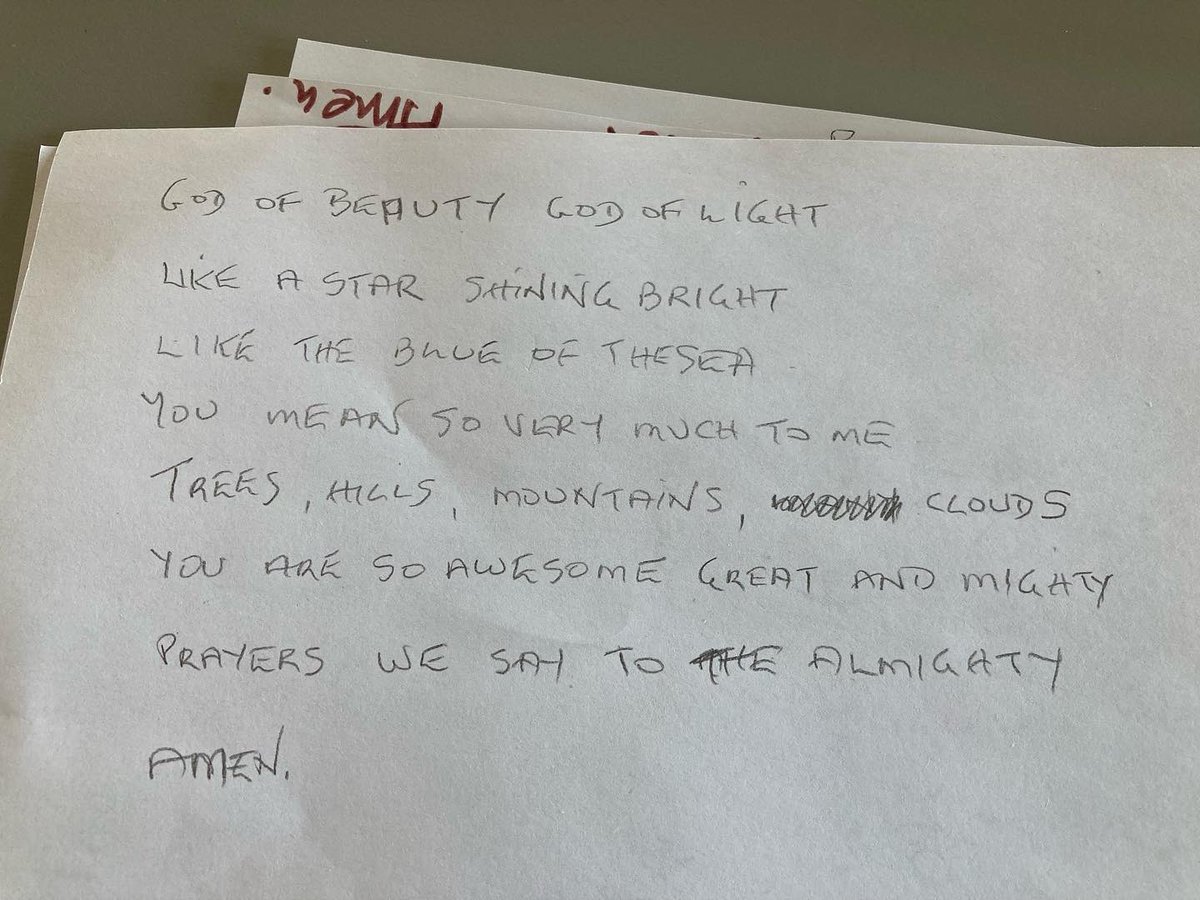 Amen.
GOD OF BEAUTY GOD OF LIGHT
LIKE A STAR SHINING BRIGHT
LIKE THE BLUE OF THE SEA
YOU MEAN SO VERY MUCH TO ME
TREES, HILLS, MOUNTAINS, CLOUDS
YOU ARE SO AWESOME GREAT AND MIGHTY
PRAYERS WE SAY TO THE ALMIGHTY
AMEN.